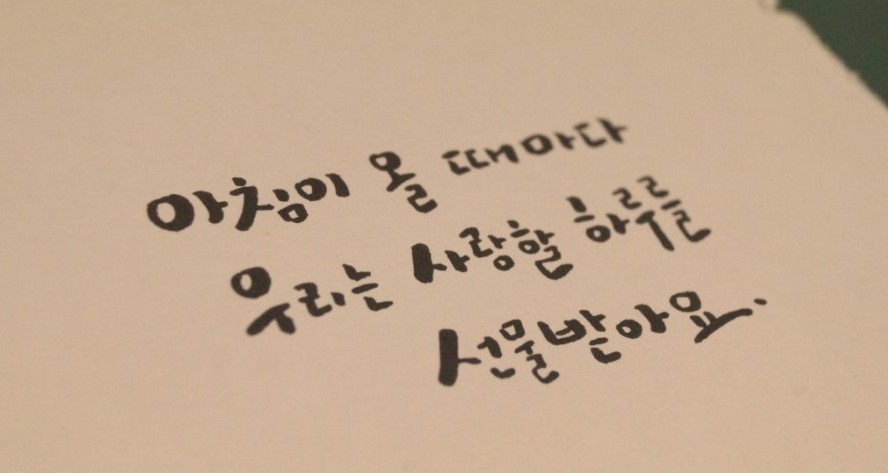 아침이 올 때마다
우리는 사랑할 하루를
선물받아요.